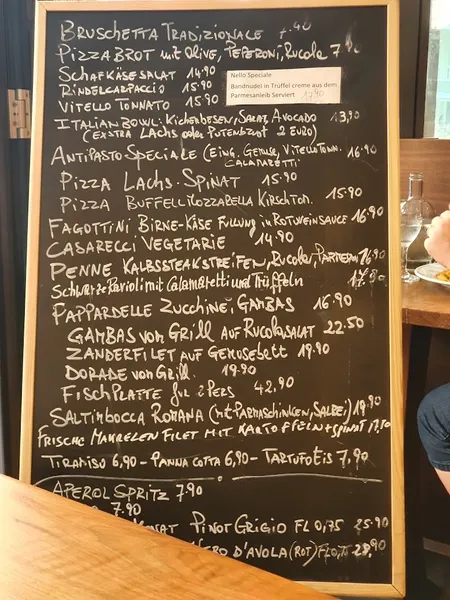 BRUSCHETTA TRADIZIONALE 7.40
PIZZABROT mit OLIVE, PEPERONI, Rucola 7.
SCHAFKÄSESALAT 14.90
RINDERCARPACCIO 15.90
VITELLO TONNATO 15.90
Nello Speciale
Bandnudel in Trüffel creme aus dem
Parmesanleib Serviert 17.90
ITALIAN BOWL: Kichererbsen, SALAT, AVOCADO 13,90
(EXSTRA LACHS oder PUTENBRUST 2 EURO)
ANTIPASTO SPECIALE (EING. GEMÜSE, VITELLO TONN. 16.90
CALAMARETTI
PIZZA LACHS-SPINAT 15.90
PIZZA BUFFELMOZZARELLA KIRSCHTOM. 15.90
FAGOTTINI BIRNE-KÄSE FÜLLUNG in ROTWEINSAUCE 16.90
CASARECCI VEGETARIE 14.90
PENNE KALBSSTEAKSTREIFEN, Rucola, PARMESAN 16.90
Schwarze Ravioli mit Calamaretti und Trüffeln 17.90
PAPPARDELLE ZUCCHINE, GAMBAS 16.90
GAMBAS vom GRILL AUF Rucolasalat 22.50
ZANDERFILET AUF GEMÜSEBETT 19.90
DORADE vom GRILL 19.90
FISCHPLATTE für 2 PERS 42,90
SALTIMBOCCA ROMANA (mit PARMASCHINKEN, SALBEI) 19.90
FRISCHE MAKRELEN FILET MIT KARTOFFELN + SPINAT 17,90
TIRAMISU 6,90 - PANNA COTTA 6,90 - TARTUFO EIS 7,90
APEROL SPRITZ 7.90
7.90
PINOT GRIGIO FL 0,75 25.90
NERO D'AVOLA (ROT) FL 0,75 28,90